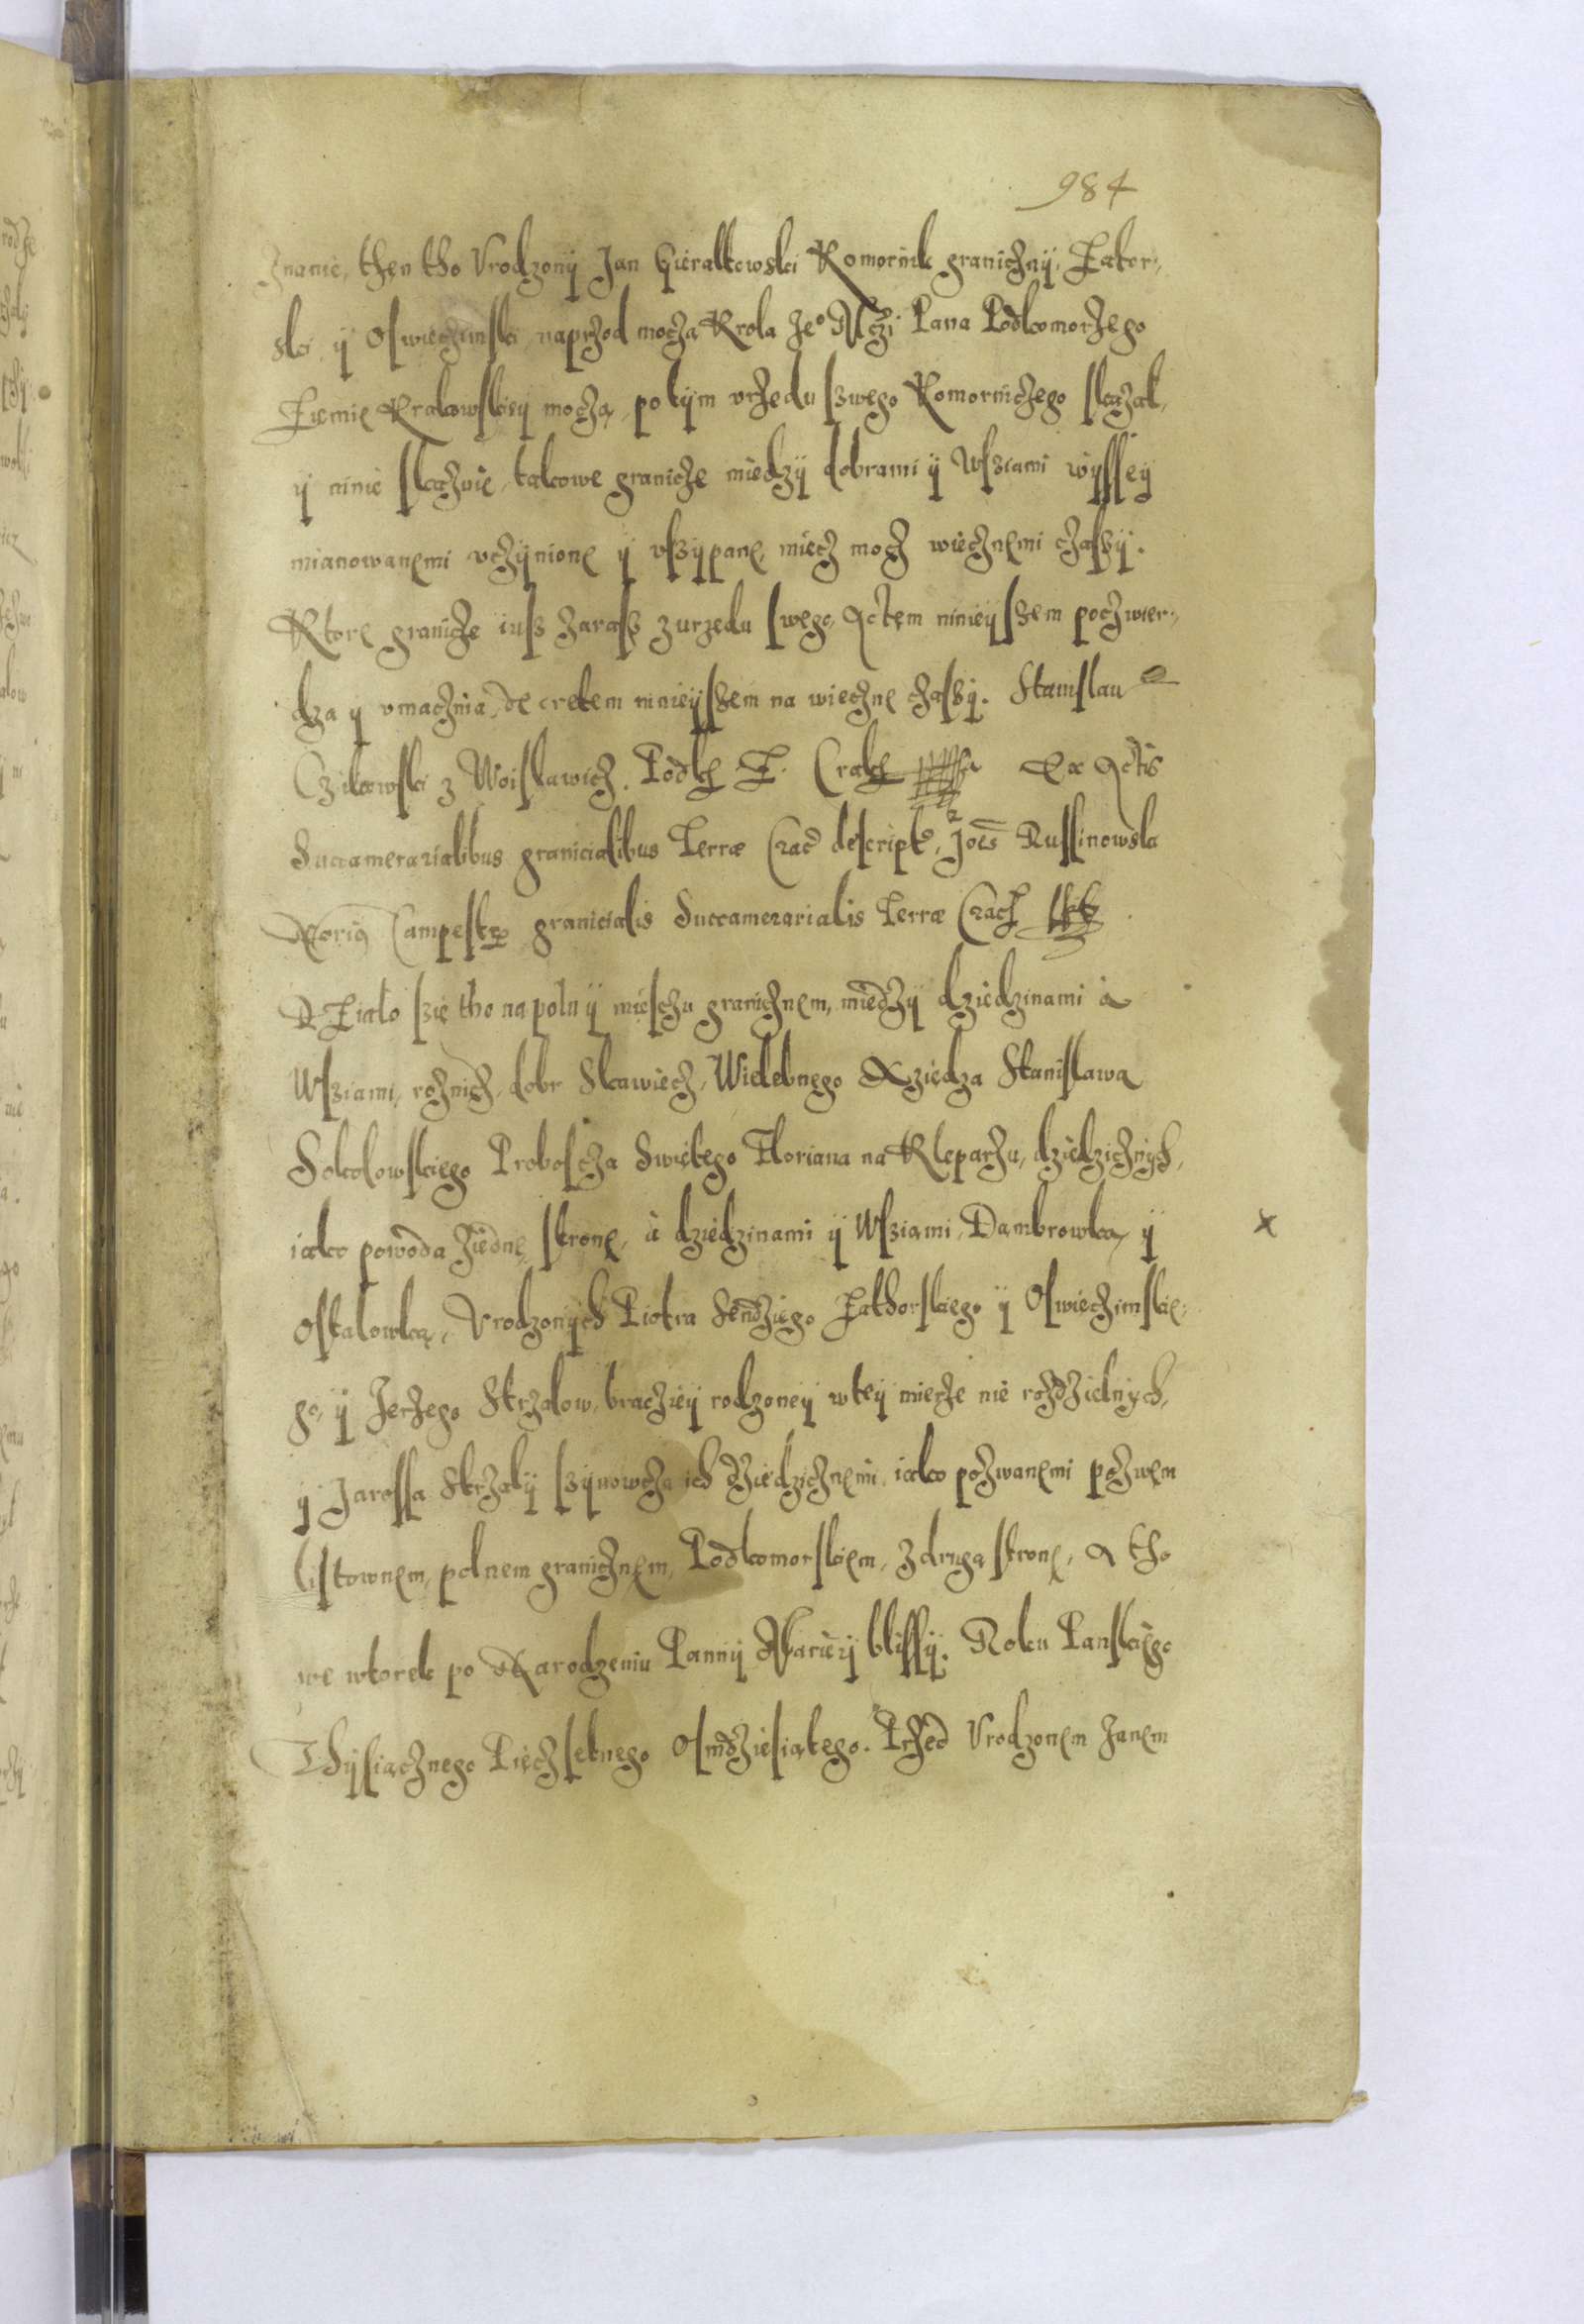 984
znanie, then tho Vrodzonÿ Jan Gieraltowski Komornik granicznÿ, Zator,,
ski ÿ Oswieczimski naprzod moczą Krola Jeº Mczi Pana Podkomorzego
Ziemie Krakowskieÿ moczą, potÿm vrzedu swego Komorniczego skazal,
ÿ ninie skazuie, takowe granicze miedzÿ dobrami ÿ Wsziami wÿsseÿ
mianowanemi vczÿnione ÿ vszÿpane, miecz mocz wiecznemi czaszÿ.
Ktore granicze iusz zarasz z urzedu swego, Actem ninieÿszem poczwier,,
dza ÿ vmacznia, decretem ninieÿszem na wieczne czaszÿ. Stanislau
Czikowski z Woislawicz. Podk: Z. Crak: Ex Actis
Succamerarialibus granicialibus Terræ Crac descript, Joes Russinowski
Norius Campestr granicialis Succamerarialis Terræ Crac
Dzialo szie tho na polu ÿ miesczu granicznem, miedzÿ dziedzinami a
Wsziami, roznich, dobr Skawiecz, Wielebnego Xziedza Stanislawa
Sokolowskiego Proboscza Swietego Floriana na Kleparzu, dziedzicznÿch,
iako powoda z iedne strone, a dziedzinami ÿ Wsziami, Dambrowką, ÿ
Ostalowką, Vrodzonÿch Piotra Sendziego Zathorskiego ÿ Oswieczimskie,,
go, ÿ Jerzego Strzalow, braczieÿ rodzoneÿ w teÿ mierze nie rozdzielnÿch,
ÿ Jarossa Strzalÿ szÿnowcza ich dziedzicznemi, iako pozwanemi pozwem
listownem, polnem granicznem, Podkomorskiem, z drugą strone, A tho
we wtorek po Narodzeniu Pannÿ Marieÿ blissÿ. Roku Panskiego
Thÿsiącznego Pięczsetnego Osmdziesiątego. Przed Vrodzonem Janem
x